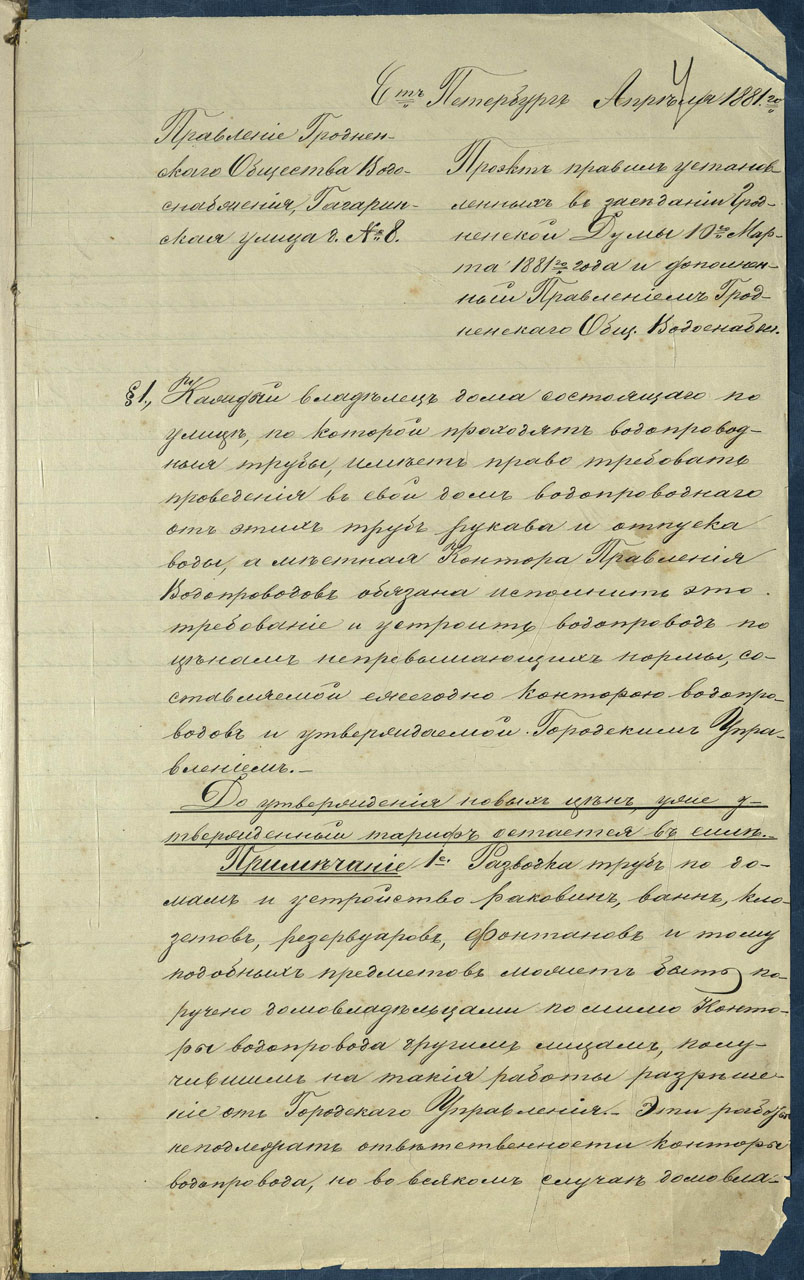 Стъ Петербургъ Апрѣля 4 1881го
Правленіе Гроднен-
скаго Общества Водо-
снабженія, Гагарин-
ская улица д. № 8.
Проэктъ правилъ установ-
ленныхъ въ засѣданіи Грод-
ненской Думы 10го Мар-
та 1881го года и дополнен-
ный Правленіемъ Грод-
ненскаго Общ. Водоснабж.
§ 1., Каждый владѣлецъ дома состоящаго по
улицѣ, по которой проходятъ водопровод-
ныя трубы, имѣетъ право требовать
проведенія въ свой домъ водопроводнаго
отъ этихъ трубъ рукава и отпуска
воды, а мѣстная Контора Правленія
Водопроводовъ обязана исполнить это
требованіе и устроить водопроводъ по
цѣнамъ непревышающихъ нормы, со-
ставляемой ежегодно Конторою водопро-
водовъ и утверждаемой Городскимъ Упра-
вленіемъ.–
До утвержденія новыхъ цѣнъ, уже у-
твержденный тарифъ остается въ силѣ.–
Примѣчаніе 1е. Разводка трубъ по до-
мамъ и устройство раковинъ, ваннъ, кло-
зетовъ, резервуаровъ, фонтановъ и тому
подобныхъ предметовъ можетъ быть по-
ручено домовладѣльцами помимо Конто-
ры водопровода другимъ лицамъ, полу-
чившимъ на такія работы разрѣше-
ніе отъ Городскаго Управленія.– Эти работы
неподлежатъ отвѣтственности конторы
водопровода, но во всякомъ случаѣ домовла-